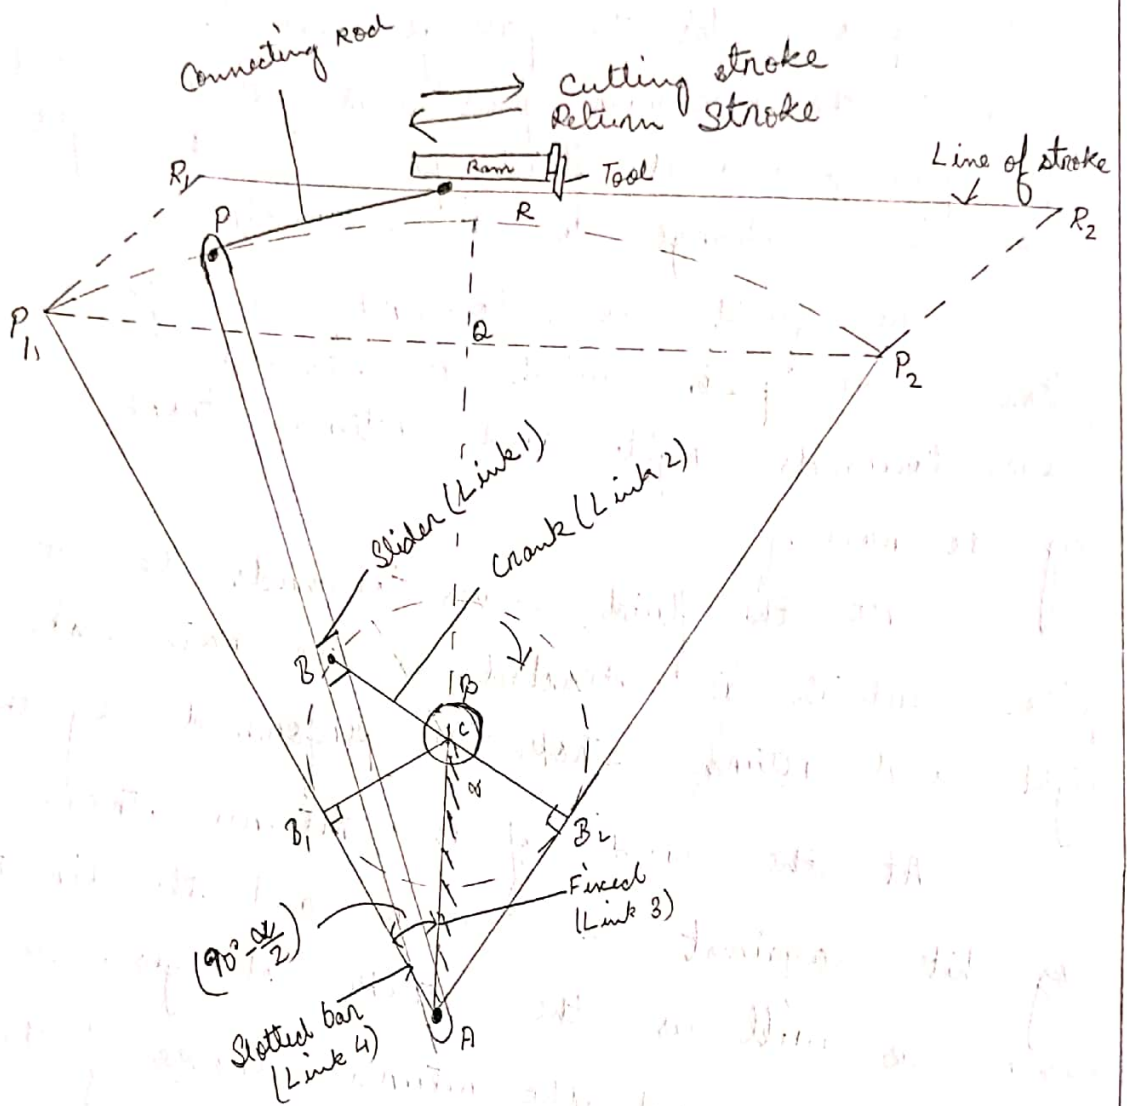 Connecting Rod
Cutting stroke
Return Stroke
Ram
Tool
Line of stroke
R1
R
R2
P
P1
Q
P2
Slider (Link 1)
Crank (Link 2)
B
β
C
α
B1
B2
Fixed
(Link 3)
(90° - α/2)
Slotted bar
(Link 4)
A